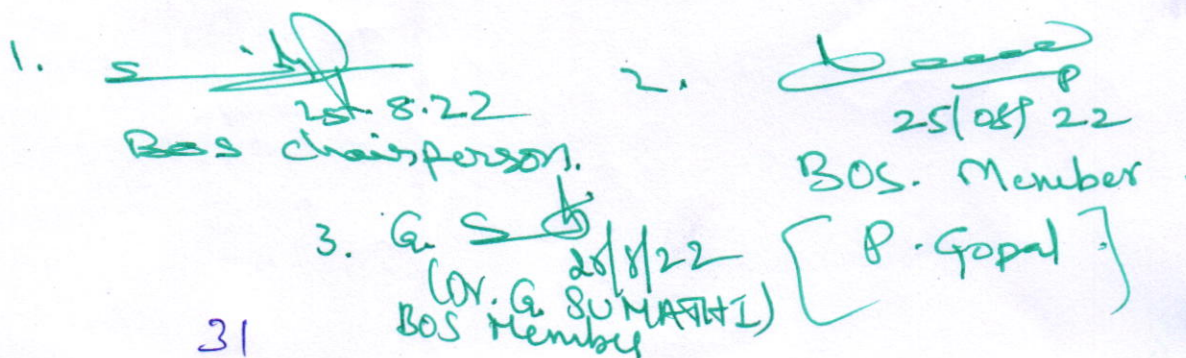 1.
25.8.22
BOS chairperson.
2.
25/08/22
BOS. Member
[P. Gopal]
3. G. S
25/8/22
(Dr. G. SUMATHI)
BOS Member
31